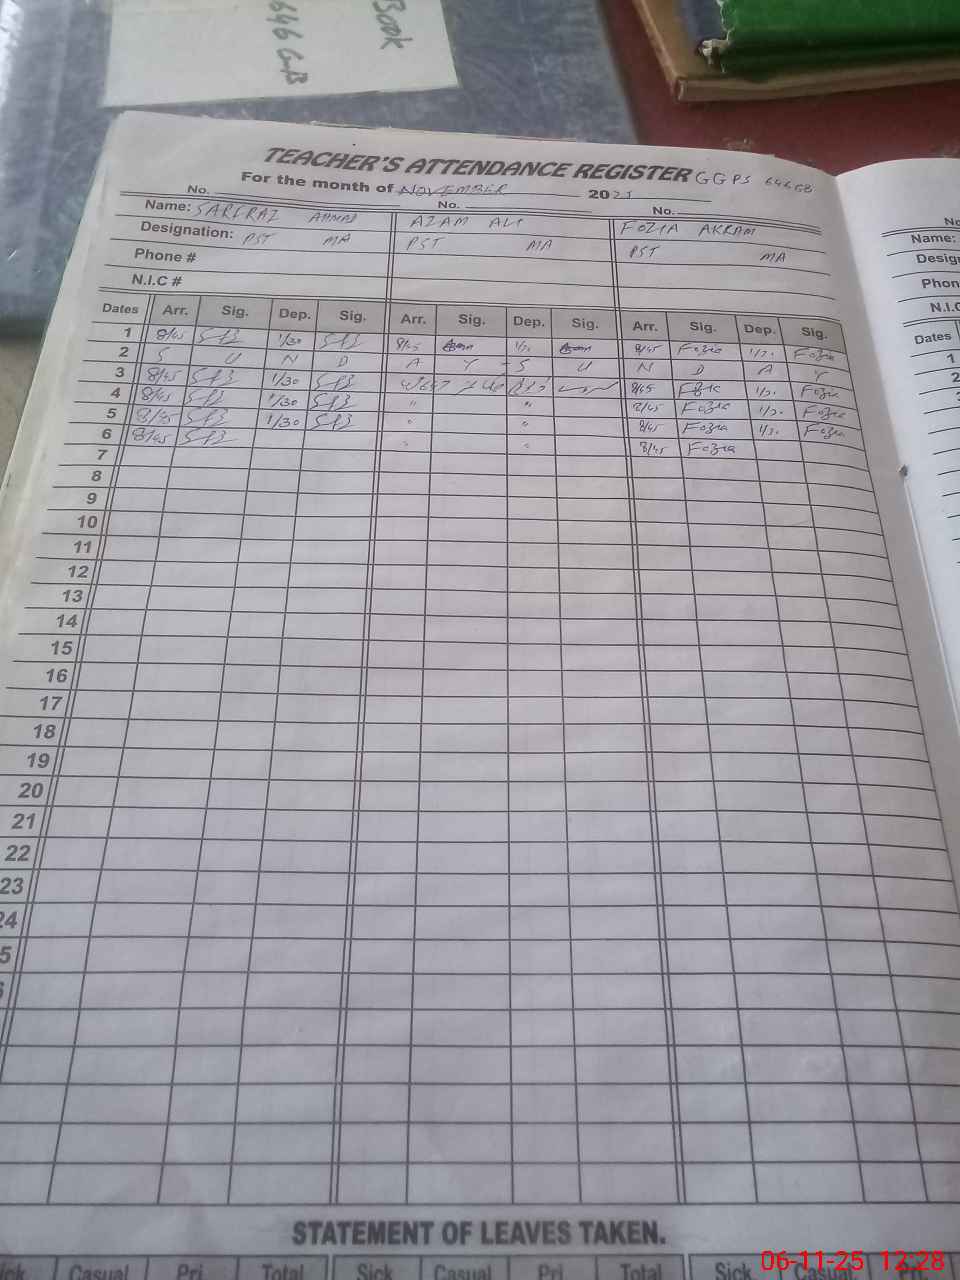 Book
646 GB
TEACHER'S ATTENDANCE REGISTER GGPS 646 GB
For the month of NOVEMBER 2025
No. No. No.
Name: SARFRAZ AHMAD AZAM ALI FOZIA AKRAM
Designation: PST MA PST MA PST MA
Phone #
N.I.C #
Dates Arr. Sig. Dep. Sig. Arr. Sig. Dep. Sig. Arr. Sig. Dep. Sig.
1 8/45 1/30 8/45 8/45 Fozia 1/30 Fozia
2 S U N D A Y - S U N D A Y
3 8/45 1/30 8/45 Fozia 1/30 Fozia
4 8/45 1/30 " " 8/45 Fozia 1/30 Fozia
5 8/45 1/30 " " 8/45 Fozia 1/30 Fozia
6 8/45 " " 8/45 Fozia
7
8
9
10
11
12
13
14
15
16
17
18
19
20
21
22
23
24
5
STATEMENT OF LEAVES TAKEN.
Sick Casual Pri. Total Sick Casual Pri. Total Sick Casual
No.
Name:
Design
Phon
N.I.C
Dates
1
2
06-11-25 12:28